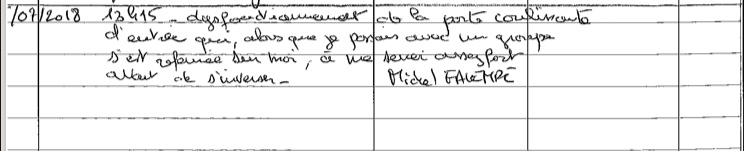 /07/2018 13h15 - dysfonctionnement de la porte coulissante
d'entrée qui, alors que je passais avec un groupe
s'est refermée sur moi, a me serrer assez fort
avant de s'inverser -
Michel